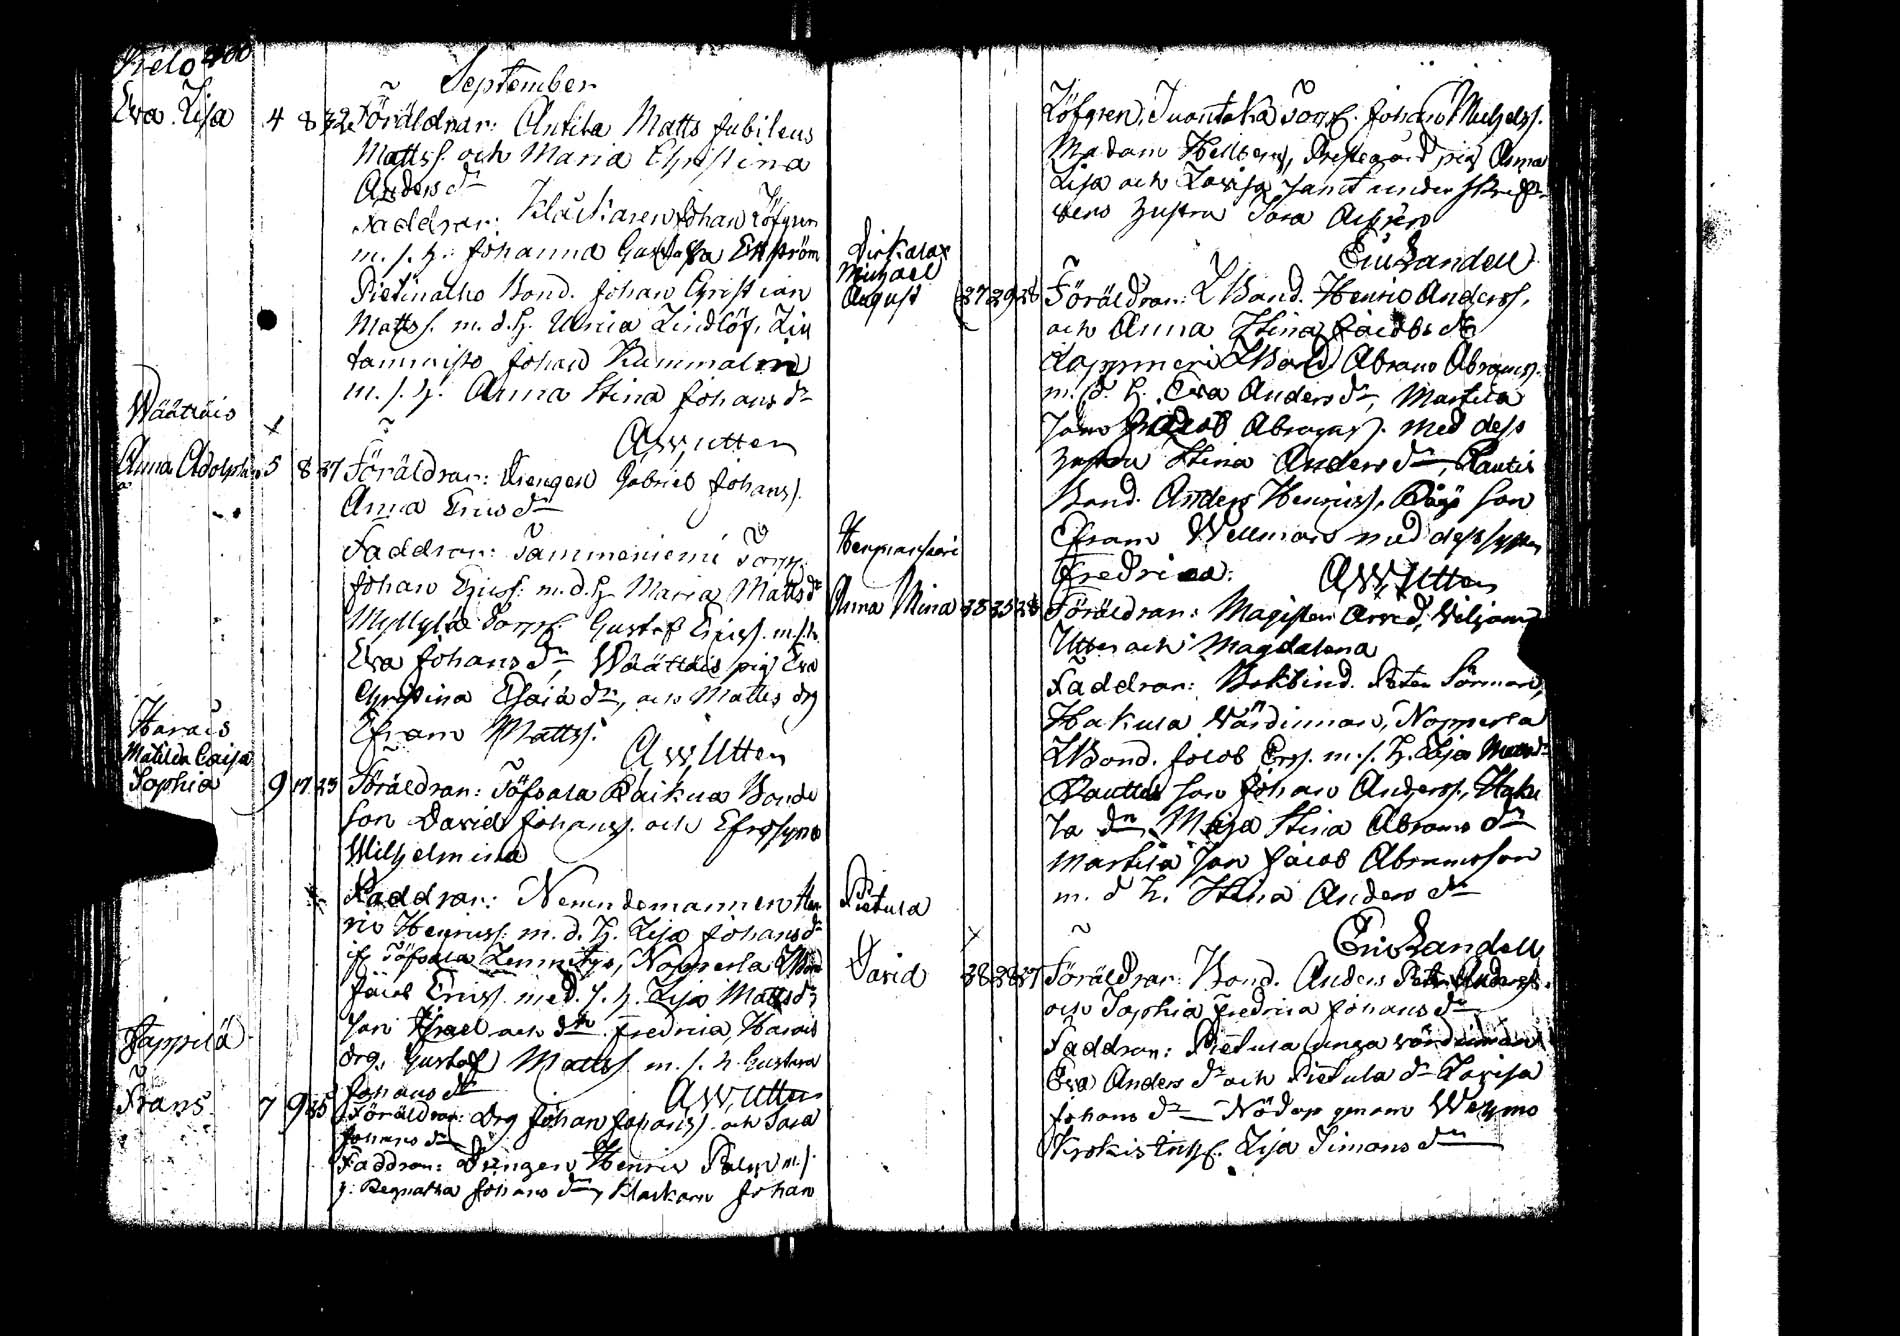 September
Eva Lisa 4 8 32 Föräldrar: Antila Matts Jubileus
Mattss. och Maria Christina
Anders dr
Faddrar: Klåckaren Johan Löfgren
m. s. h. Johanna Gustafva Ekström
Pietinalho Bond. Johan Christian
Mattss. m. d. h. Ulrica Lindlöf, Lin
tammisto Johan Kummalin
m. s. h. Anna Stina Johans dr
Wäättäis
A W Utter
Anna Adolphina 5 8 37 Föräldrar: Drengen Gabriel Johanss.
Anna Erics dr
Faddrar: Tammeniemi Torp.
Johan Ericss. m. d. h. Maria Matts dr
Myllylä Torp. Gustaf Ericss. m. s. h.
Eva Johans dr, Wäättäis pig. Eva
Christina Esaias dr, och Mattes drg
Efram Mattss.
Harais
A W Utter
Matilda Caisa
Sophia 9 17 23 Föräldrar: Töfsala Raikua Bonde
son David Johanss. och Efrosyne
Wilhelmina
Faddrar: Nemndemannen Hen
ric Henricss. m. d. h. Lisa Johans dr
if. Töfsala Lemmitys, Nopperla
Jacob Ericss. med s. h. Lisa Matts dr
Son Israel och dr Fredrica, Harais
drg. Gustaf Mattss. m. s. h. Gustava
Johans dr
Pappila
A W Utter
Frans 7 9 35 Föräldrar: Drg Johan Johanss. och Sara
Johans dr
Faddrar: Drängen Henric Palm m. s.
h. Regnatha Johans dr, Klockarn Johan
Löfgren, Juantaka Torp. Johan Michelss.
Madam Hellberg, Prestegård pig. Anna
Lisa och Lovisa samt under skrif
vens hustru Sara
Eric Landell
Michael
August 27 29 28 Föräldrar: L Bond. Henric Anderss.
och Anna Stina Jacobs dr
Lammeri L Bond Abram Abramss.
m. d. h. Eva Anders dr, Martila
Son Jacob Abramss. med dess
hustru Stina Anders dr, Rautis
Bond. Anders Henricss, son
Efram Wellmars med dess syster
Fredrica.
A W Utter
Anna Mina 25 25 28 Föräldrar: Magister Arvid Viljam
Utter och Magdalena
Faddrar: Bokbind. Peter Sörman,
Hakula Värdinnan, Nopperla
L Bond. Jacob Erss. m. s. h. Lisa Matts dr
Rauttis son Johan Anderss., Haku
la dr Maja Stina Abrams dr
Martila Son Jacob Abramsson
m. d h. Stina Anders dr
Pietula
Eric Landell
David 28 28 37 Föräldrar: Bond. Anders Anderss.
och Sophia Fredrica Johans dr
Faddrar: Pietula unga värdinnan
Eva Anders dr och Pietula dr Lovisa
Johans dr Nödop genom Wehmo
Krokis Lisa Simons dr